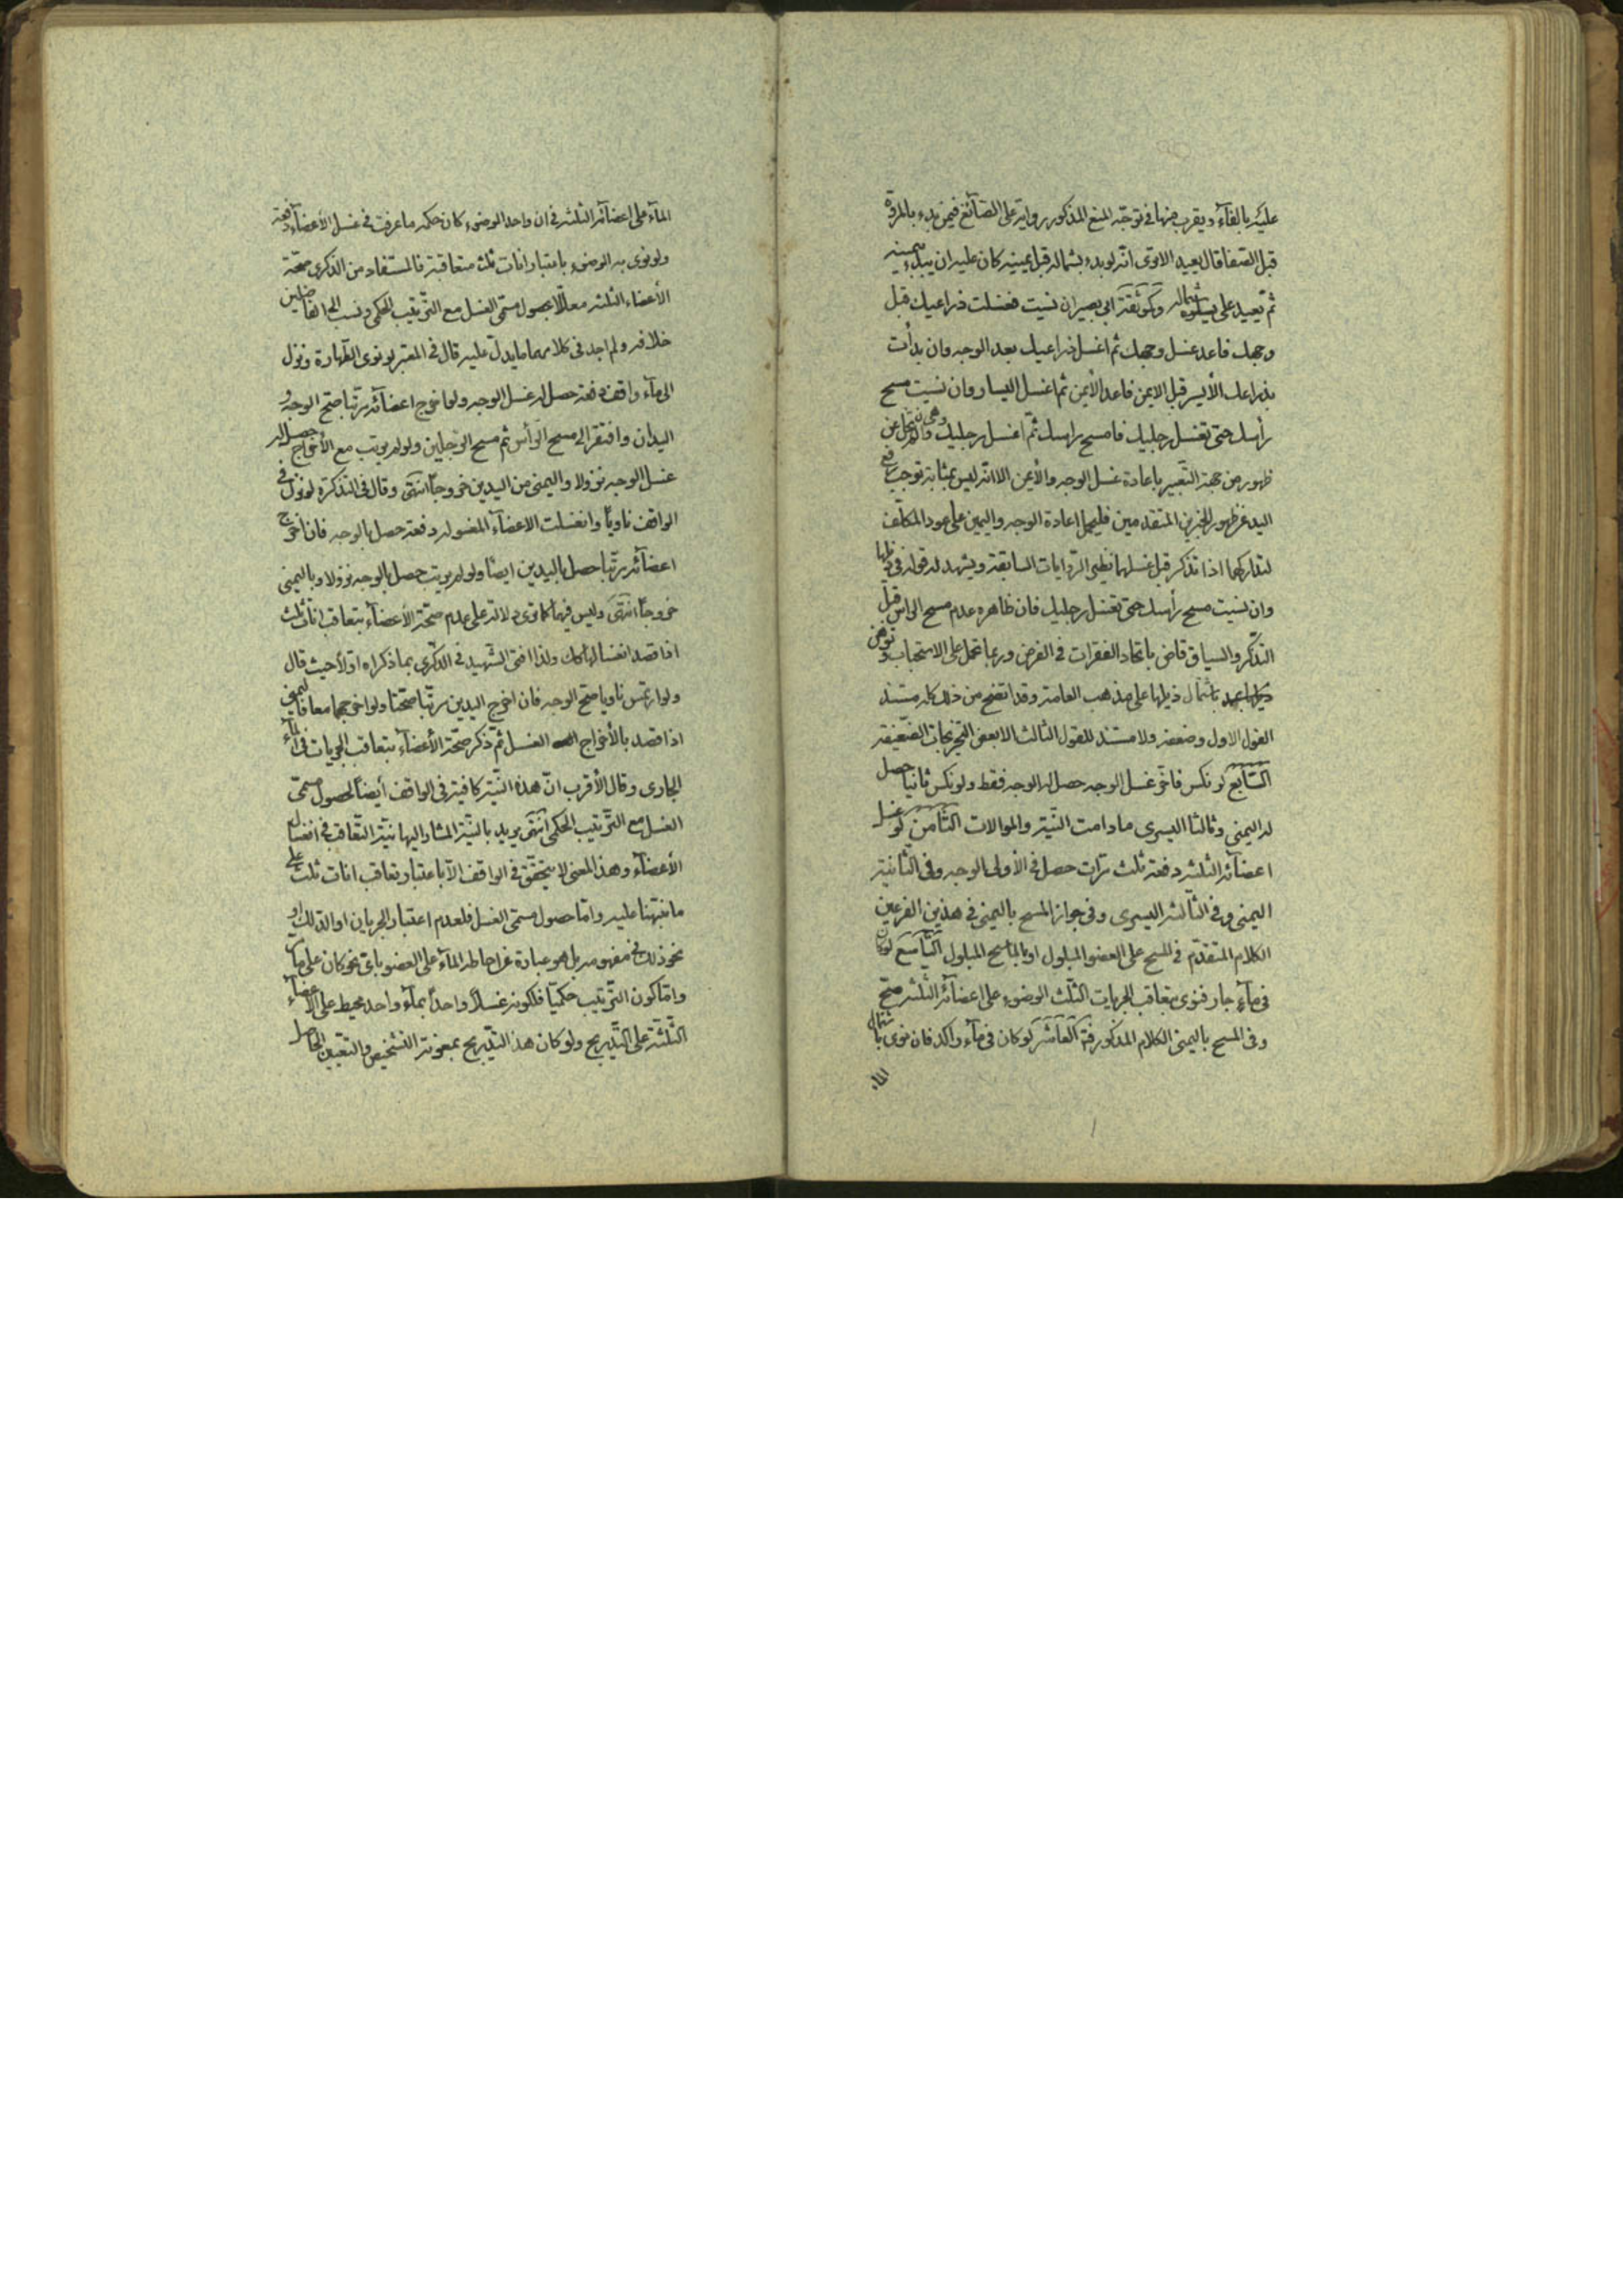 عليه بالفآء ويقرب منها في توجّه المنع المذكور رواية على الصّائغ فيمن بدء بالمروة
قبل الصّفا قال يعيد الا ترى انّه لو بدء بشماله قبل يمينه كان عليه ان يبدء بيمينه
ثم يعيد على شماله وكموثقة ابي بصير ان نسيت فغسلت ذراعيك قبل
وجهك فاعد غسل وجهك ثم اغسل ذراعيك بعد الوجه وان بدأت
بذراعك الأيسر قبل الايمن فاعد الأيمن ثم اغسل اليسار وان نسيت مسح
رأسك حتى تغسل رجليك فامسح راسك ثم اغسل رجليك وهى وان لم تخل عن
ظهور من جهة التّعبير باعادة غسل الوجه والأيمن الا انّه ليس بمثابة توجب رفع
اليد عن ظهور الخبرين المتقدمين فليحمل اعادة الوجه واليمين على عود المكلّف
لتداركهما اذا تذكر قبل غسلهما نظير الرّوايات السابقة ويشهد له قوله في ذيلها
وان نسيت مسح رأسك حتى تغسل رجليك فان ظاهره عدم مسح الراس قبل
التذكّر والسياق قاض باتحاد الفقرات في الفرض وربما تحمل على الاستحباب وتوهن
باشتمال ذيلها على مذهب العامة وقد اتضح من ذلك كله مستند
القول الاول وضعفه ولا مستند للقول الثالث الا بعض التخريجات الضّعيفة
السّابع لو نكس فاخّر غسل الوجه حصل له الوجه فقط ولو نكس ثانيا حصل
له اليمنى وثالثا اليسرى مادامت النّية والموالات الثّامن لو غسل
اعضآئه الثلثه دفعة ثلث مرّات حصل في الأولى الوجه وفى الثّانية
اليمنى وفى الثالثه اليسرى وفى جواز المسح باليمنى في هذين الفرعين
الكلام المتقدّم في المسح على العضو المبلول او بالماسح المبلول التّاسع لو كان
في مآء جار فنوى بتعاقب الجريات الثّلث الوضوء على اعضآئه الثّلثه صحّ
وفى المسح باليمنى الكلام المذكور فيه العاشر لو كان في مآء واكد فان نوى باشتمال
المآء
المآء على اعضآئه الثلثه في ان واحد الوضوء كان حكمه ما عرفت في غسل الأعضآء دفعة
ولو نوى به الوضوء باعتبار انات ثلث متعاقبة فالمستفاد من الذكرى صحّة
الأعضاء الثلثه معلّلا بحصول مسمّى الغسل مع التّرتيب الحكمى ونسب الى الفاضلين
خلافه ولم اجد في كلامهما ما يدلّ عليه قال في المعتبر لو نوى الطّهارة ونزل
الى مآء واقف دفعة حصل له غسل الوجه ولو اخرج اعضآئه مرتّبا صحّ الوجه و
اليدان وافتقر الى مسح الرّأس ثم مسح الرّجلين ولو لم يرتب مع الأخراج حصل له
غسل الوجه نزولا واليمنى من اليدين خروجاً انتهى وقال في التذكرة لو نزل في
الواقف ناويًا وانغسلت الاعضآء المغسوله دفعة حصل بالوجه فان اخرج
اعضآئه مرتّبا حصل باليدين ايضًا ولو لم يرتب حصل بالوجه نزولا وباليمنى
خروجًا انتهى وليس فيهما كما ترى دلالة على عدم صحّة الأعضآء بتعاقب انات ثلث
اذا قصد انغسالها كك ولذا افتى الشّهيد في الذكرى بما ذكراه اوّلا حيث قال
ولو ارتمس ناويا صحّ الوجه فان اخرج اليدين مرتّبا صحّتا ولو اخرجهما معا فاليمنى
اذا قصد بالأخراج الغسل ثمّ ذكر صحّة الأعضآء بتعاقب الجريات في المآء
الجارى وقال الأقرب انّ هذه النّية كافية في الواقف أيضاً لحصول مسمّى
الغسل مع التّرتيب الحكمى انتهى يريد بالنيّة المشار اليها نيّة التّعاقب في انغسال
الأعضآء وهذا المعنى لا يتحقّق في الواقف الّا باعتبار تعاقب انات ثلث على
ما نبّهنا عليه وامّا حصول مسمّى الغسل فلعدم اعتبار الجريان او الدّلك او
نحو ذلك في مفهومه بل هو عبارة عن احاطة المآء على العضو باىّ نحو كان على ما مرّ
وامّا كون التّرتيب حكميّا فلكونه غسلاً واحداً بمآء واحد محيط على الاعضآء
الثّلثة على التّدريج ولو كان هذا التّدريج بمعونة التشخيص والتعيّين الحاصل